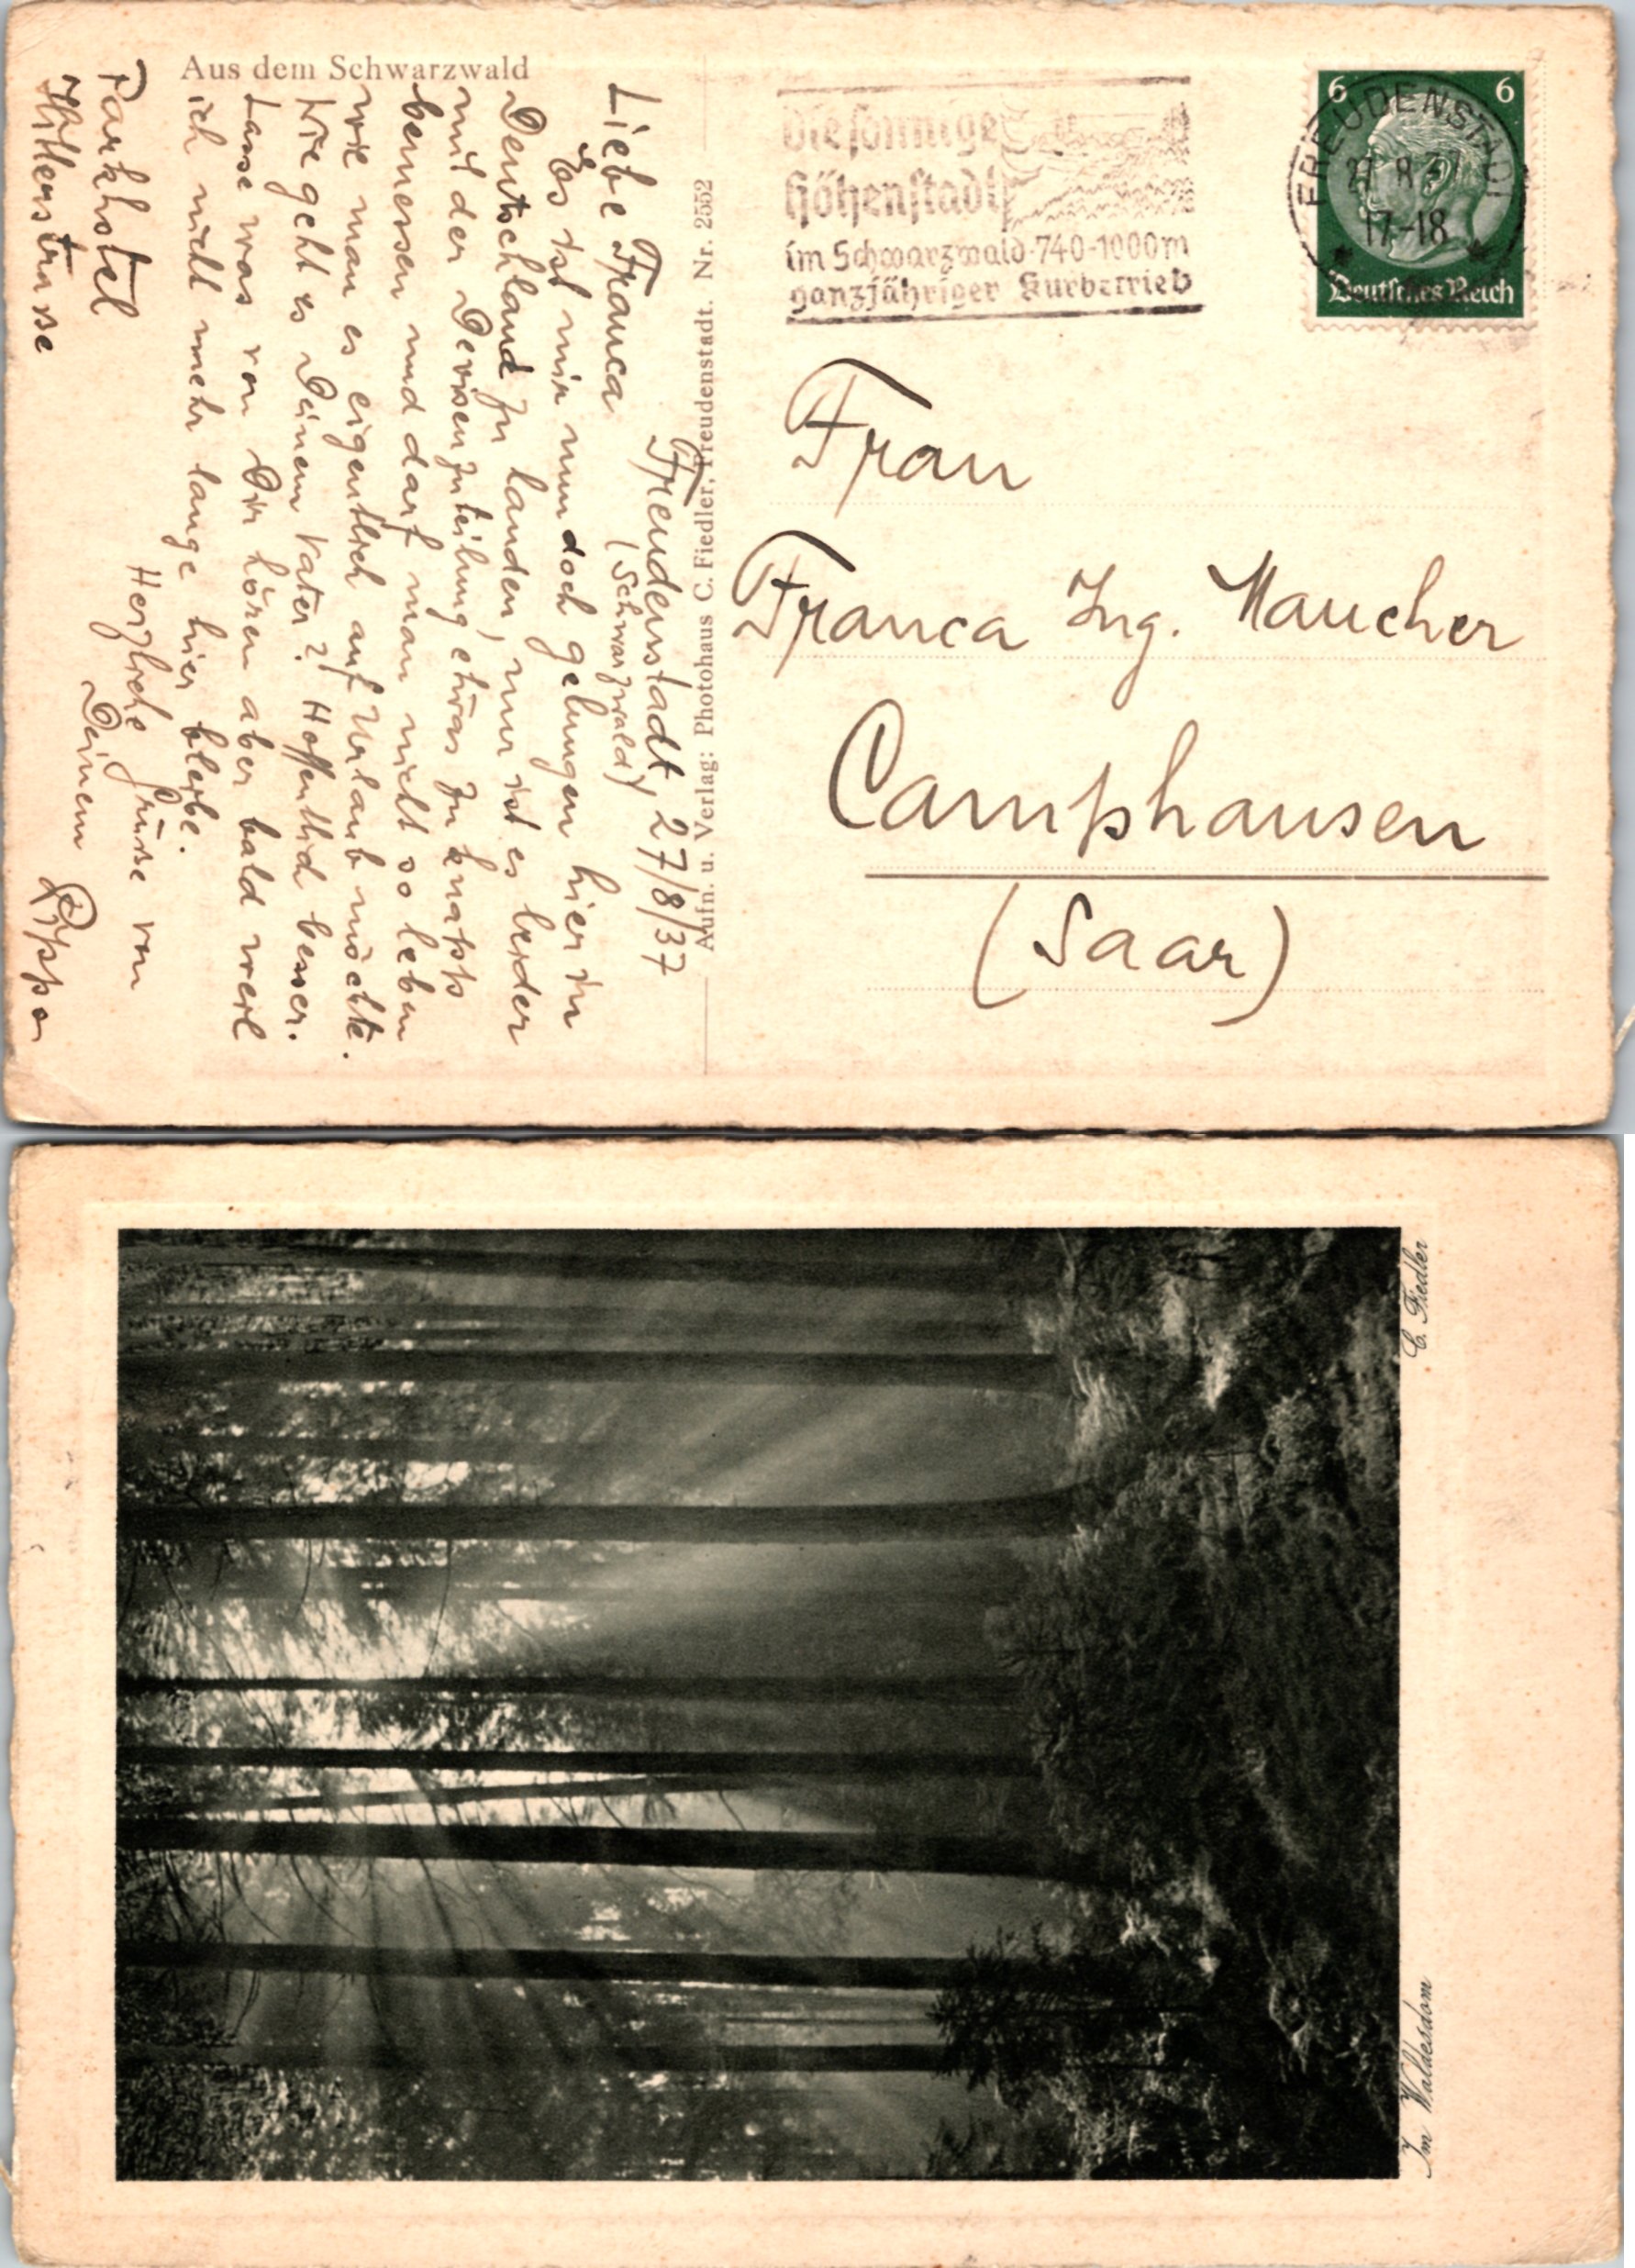 Aus dem Schwarzwald
Freudenstadt, 27/8/37
(Schwarzwald)
Liebe Franca
Es ist mir nun doch gelungen hier in
Deutschland zu landen, nur ist es leider
mit der Devisenzuteilung etwas zu knapp
bemessen und darf man nicht so leben
wie man es eigentlich auf Urlaub möchte.
Wie geht es Deinem Vater? Hoffentlich besser.
Lasse was von Dir hören aber bald weil
ich nicht mehr lange hier bleibe.
Herzliche Grüsse von
Deinem
Parkhotel
Hitlerstrasse
Aufn. u. Verlag: Photohaus C. Fiedler, Freudenstadt. Nr. 2552
Die sonnige
Höhenstadt
im Schwarzwald·740-1000m
ganzjähriger Kurbetrieb
6 6
FREUDENSTADT
27 8 37
17-18
Deutsches Reich
Frau
Franca Ing. Maucher
Camphausen
(Saar)
Im Waldesdom
C. Fiedler